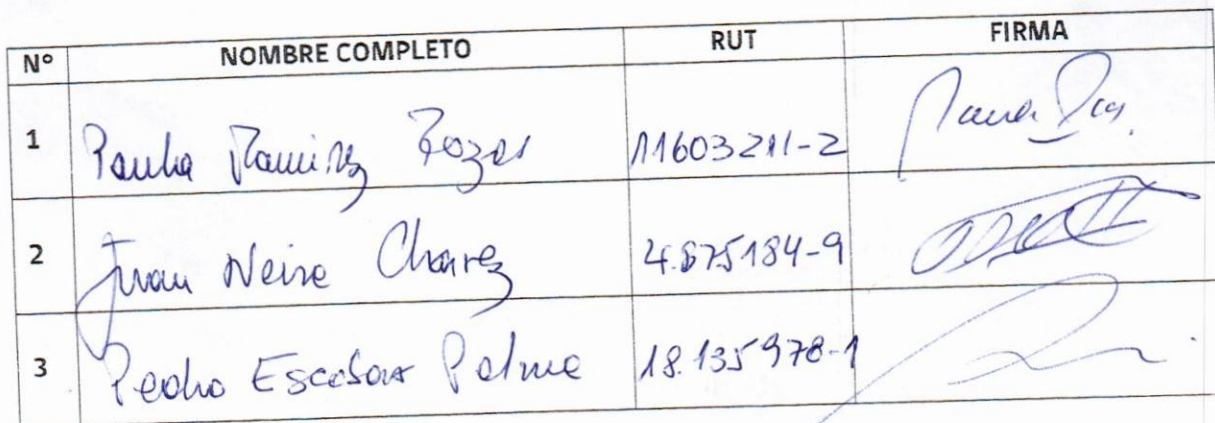 Nº NOMBRE COMPLETO RUT FIRMA
1 Paula Ramirez Rozas 11603211-2
2 Juan Neira Chavez 4.675184-9
3 Pedro Escobar Palma 18.135978-1